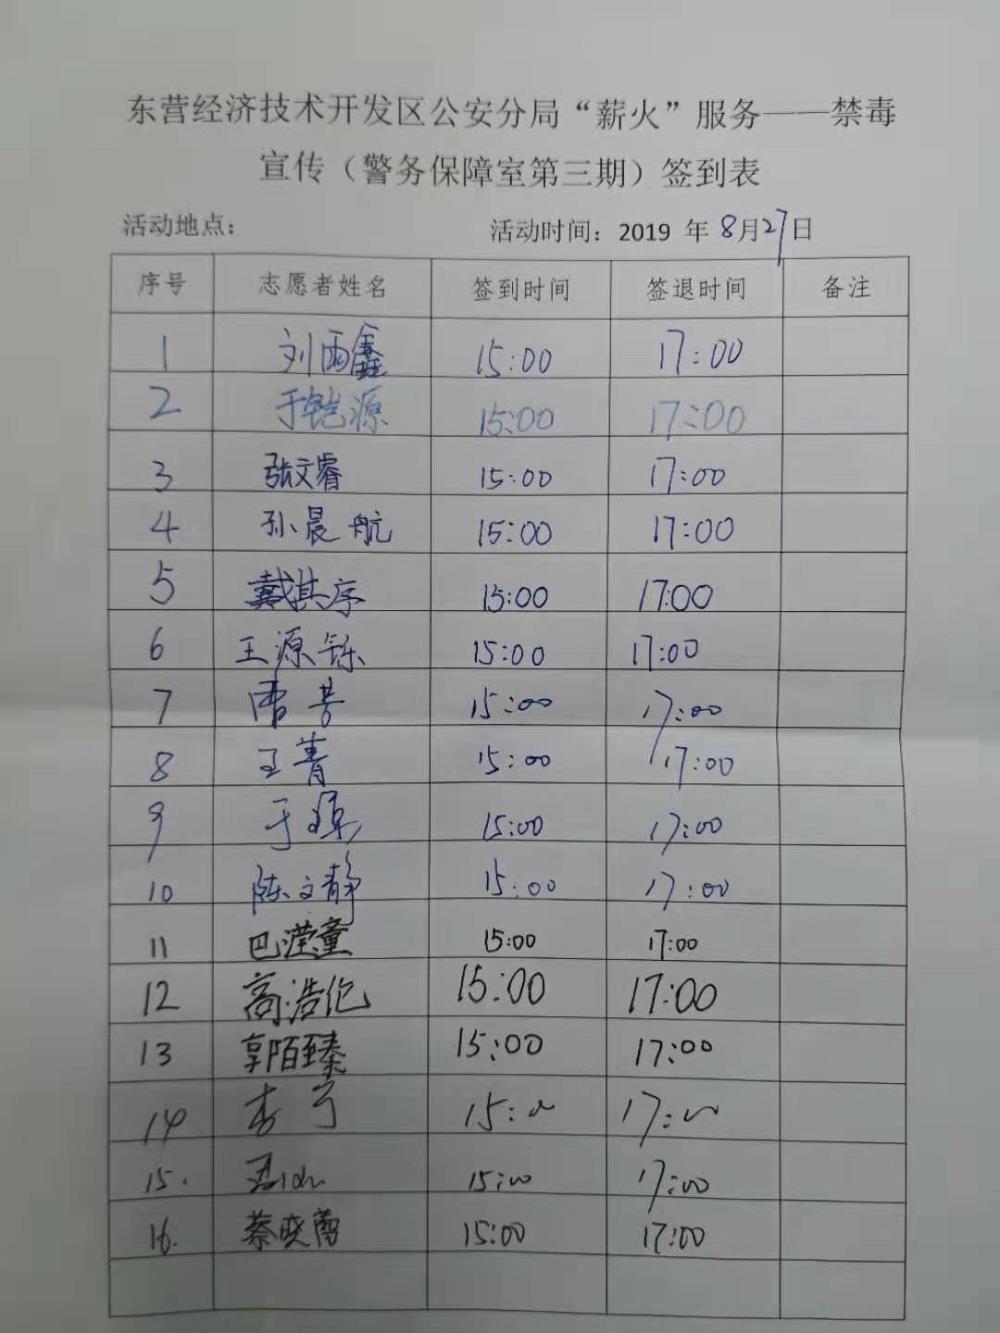 东营经济技术开发区公安分局“薪火”服务——禁毒
宣传（警务保障室第三期）签到表
活动地点： 活动时间：2019 年 8月27日
序号 志愿者姓名 签到时间 签退时间 备注
1 刘雨鑫 15:00 17:00
2 于铠源 15:00 17:00
3 张文睿 15:00 17:00
4 孙晨航 15:00 17:00
5 戴其序 15:00 17:00
6 王源铄 15:00 17:00
7 15:00 17:00
8 王菁 15:00 17:00
9 15:00 17:00
10 陈文静 15:00 17:00
11 巴滢童 15:00 17:00
12 高浩伦 15:00 17:00
13 郭陌臻 15:00 17:00
14 15:00 17:00
15. 15:00 17:00
16. 15:00 17:00